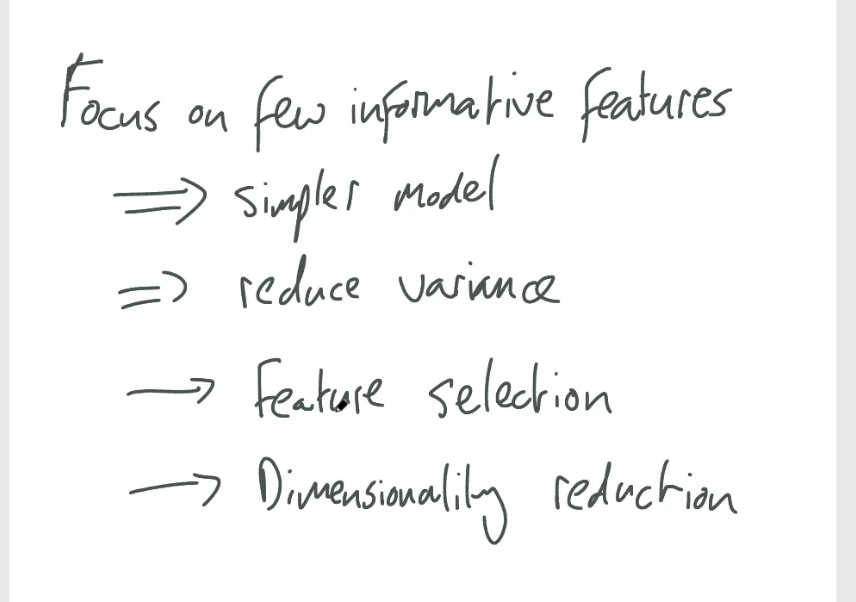 Focus on few informative features
⇒ simpler model
⇒ reduce variance
→ Feature selection
→ Dimensionality reduction